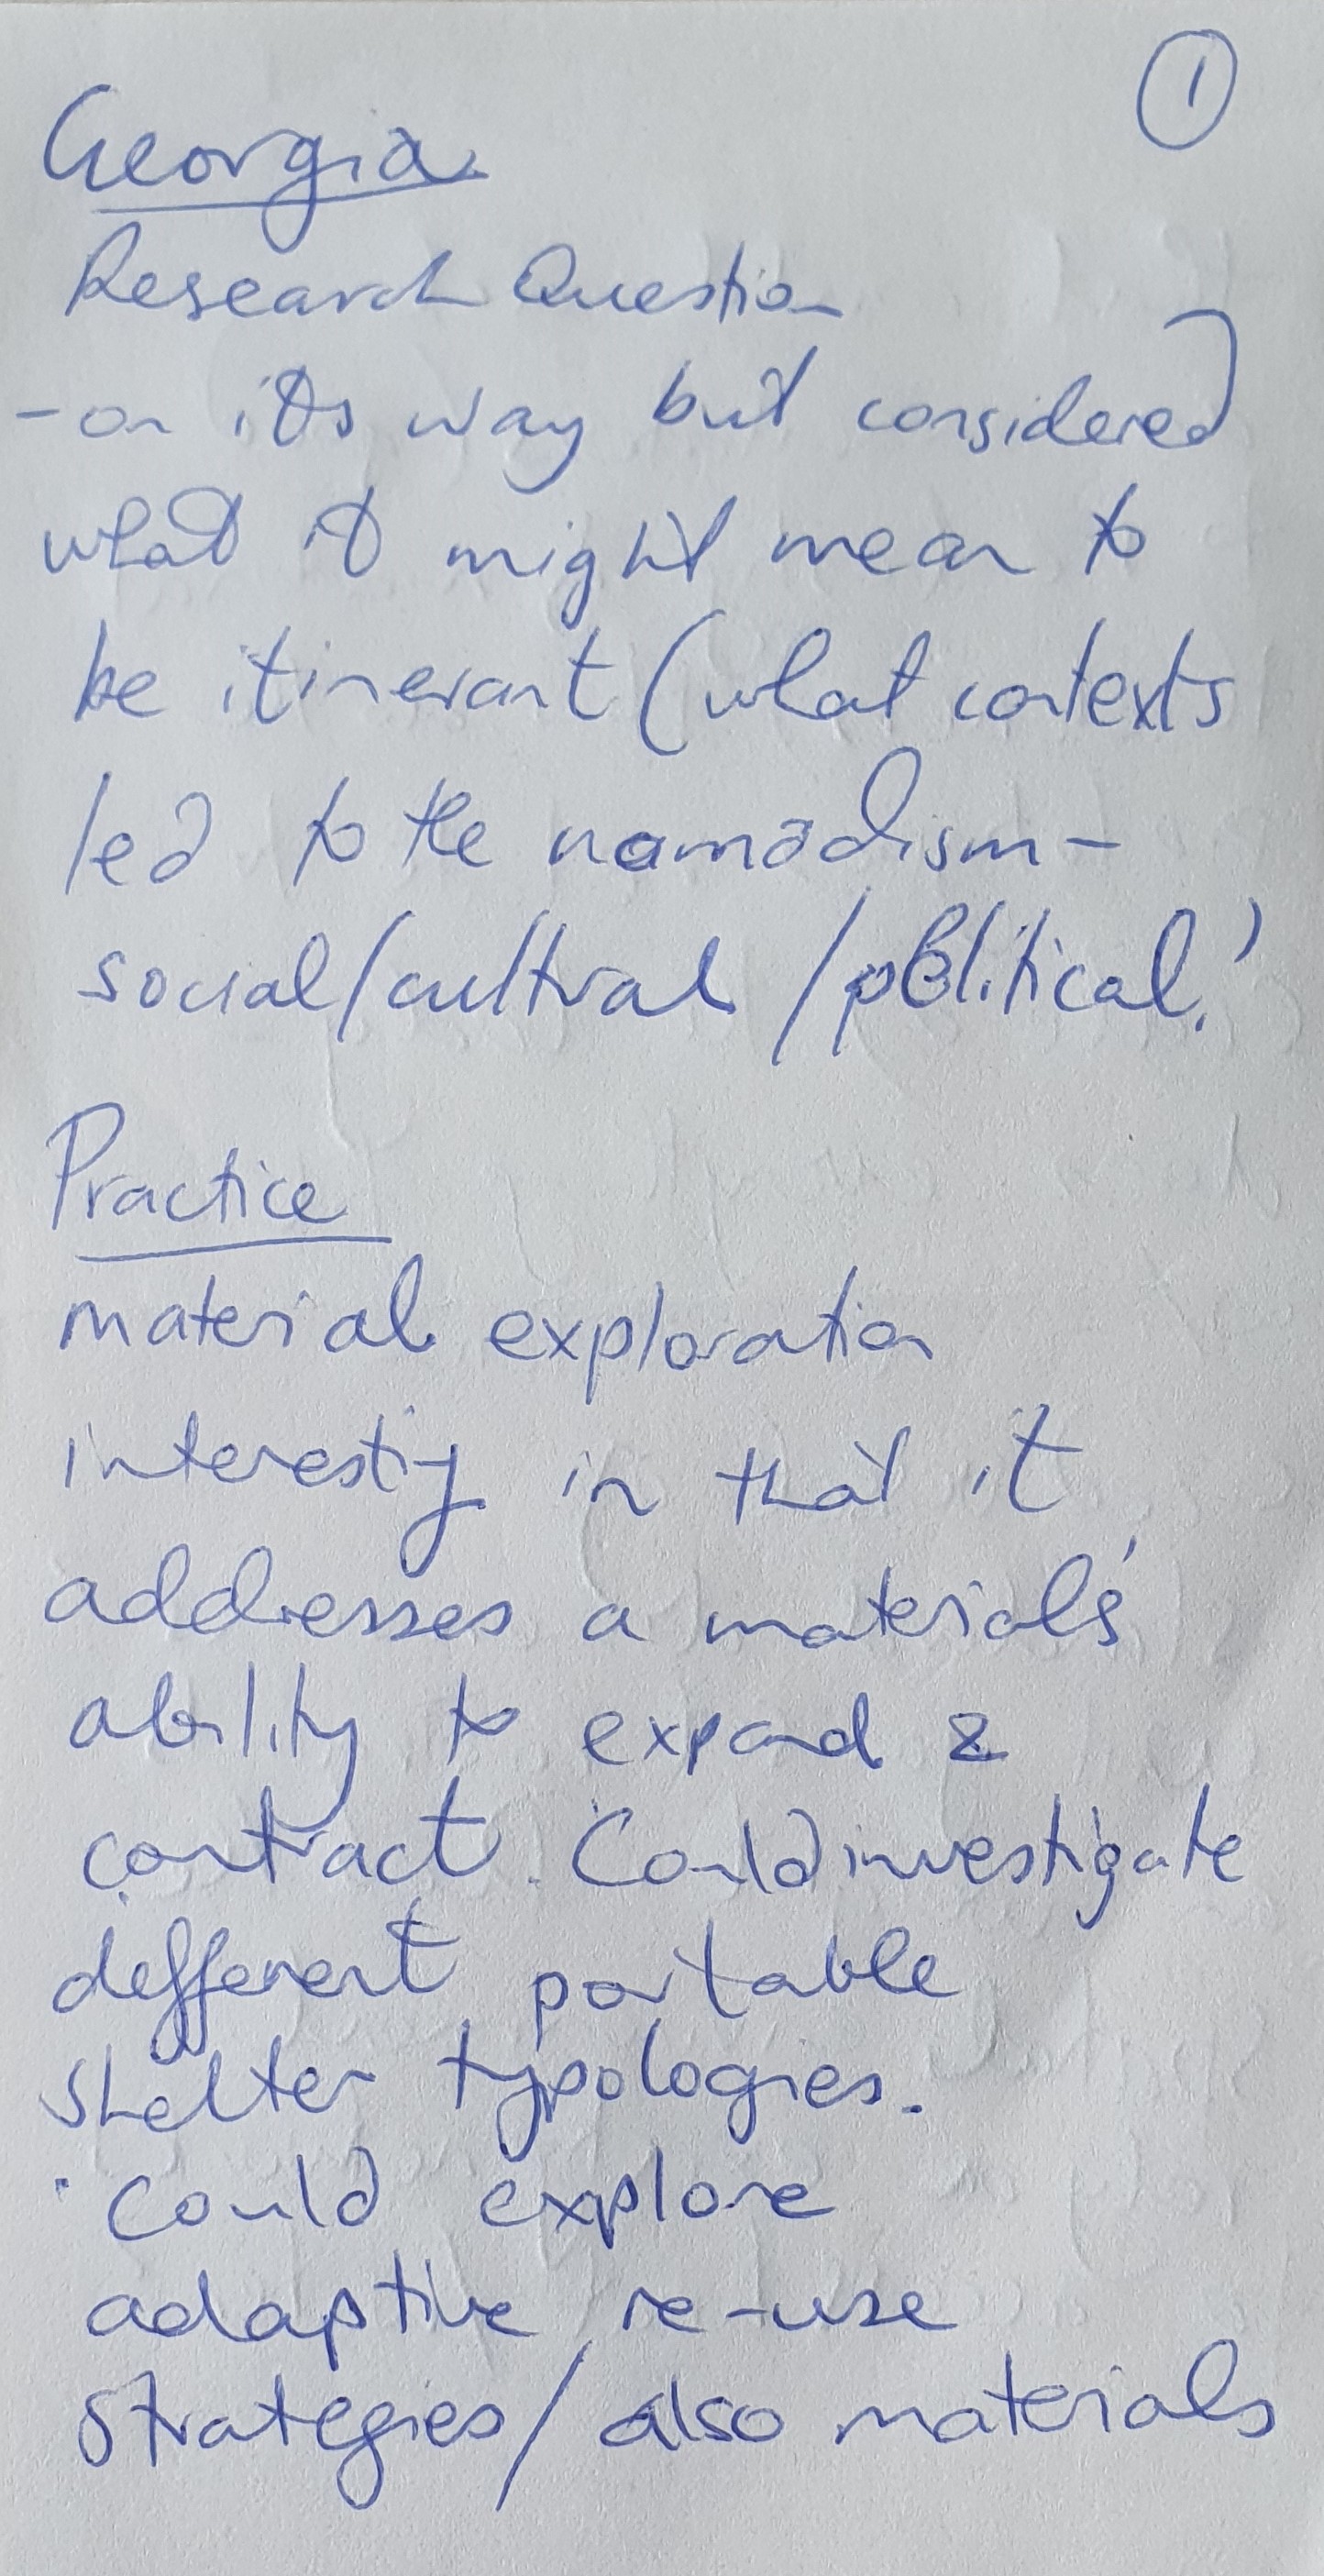 ①
Georgia
Research Question
- on its way but considered
what it might mean to
be itinerant (what contexts
led to the nomadism -
social/cultural/political.)
Practice
material exploration
interesting in that it
addresses a material's
ability to expand &
contract. Could investigate
different portable
shelter typologies.
· Could explore
adaptive re-use
strategies/also materials